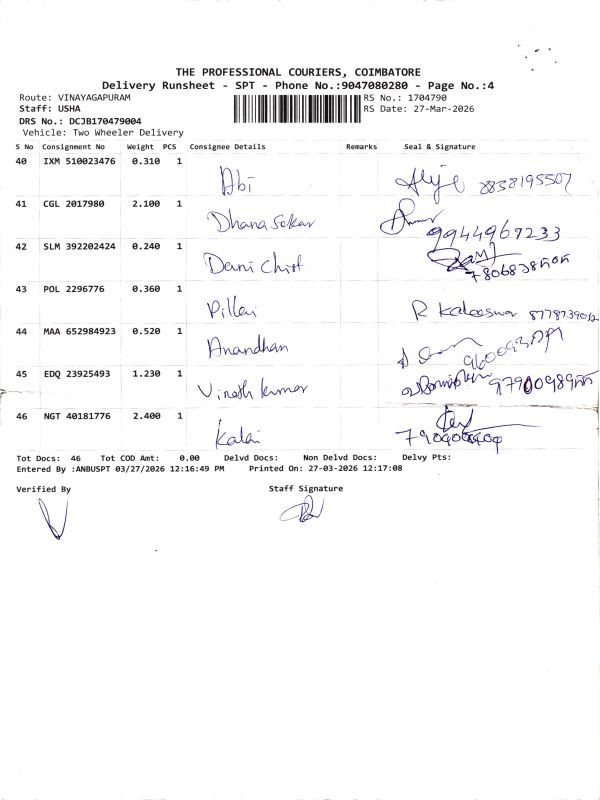 THE PROFESSIONAL COURIERS, COIMBATORE
Delivery Runsheet - SPT - Phone No.:9047080280 - Page No.:4
Route: VINAYAGAPURAM RS No.: 1704790
Staff: USHA RS Date: 27-Mar-2026
DRS No.: DCJB170479004
Vehicle: Two Wheeler Delivery
S No Consignment No Weight PCS Consignee Details Remarks Seal & Signature
40 IXM 510023476 0.310 1 Abi 8838195507
41 CGL 2017980 2.100 1 Dhana Sekar 9944967233
42 SLM 392202424 0.240 1 Dani Christ
43 POL 2296776 0.360 1 Pillai R Kaleeswar
44 MAA 652984923 0.520 1 Anandhan
45 EDQ 23925493 1.230 1 Vinoth kumar
46 NGT 40181776 2.400 1 Kalai
Tot Docs: 46 Tot COD Amt: 0.00 Delvd Docs: Non Delvd Docs: Delvy Pts:
Entered By :ANBUSPT 03/27/2026 12:16:49 PM Printed On: 27-03-2026 12:17:08
Verified By Staff Signature